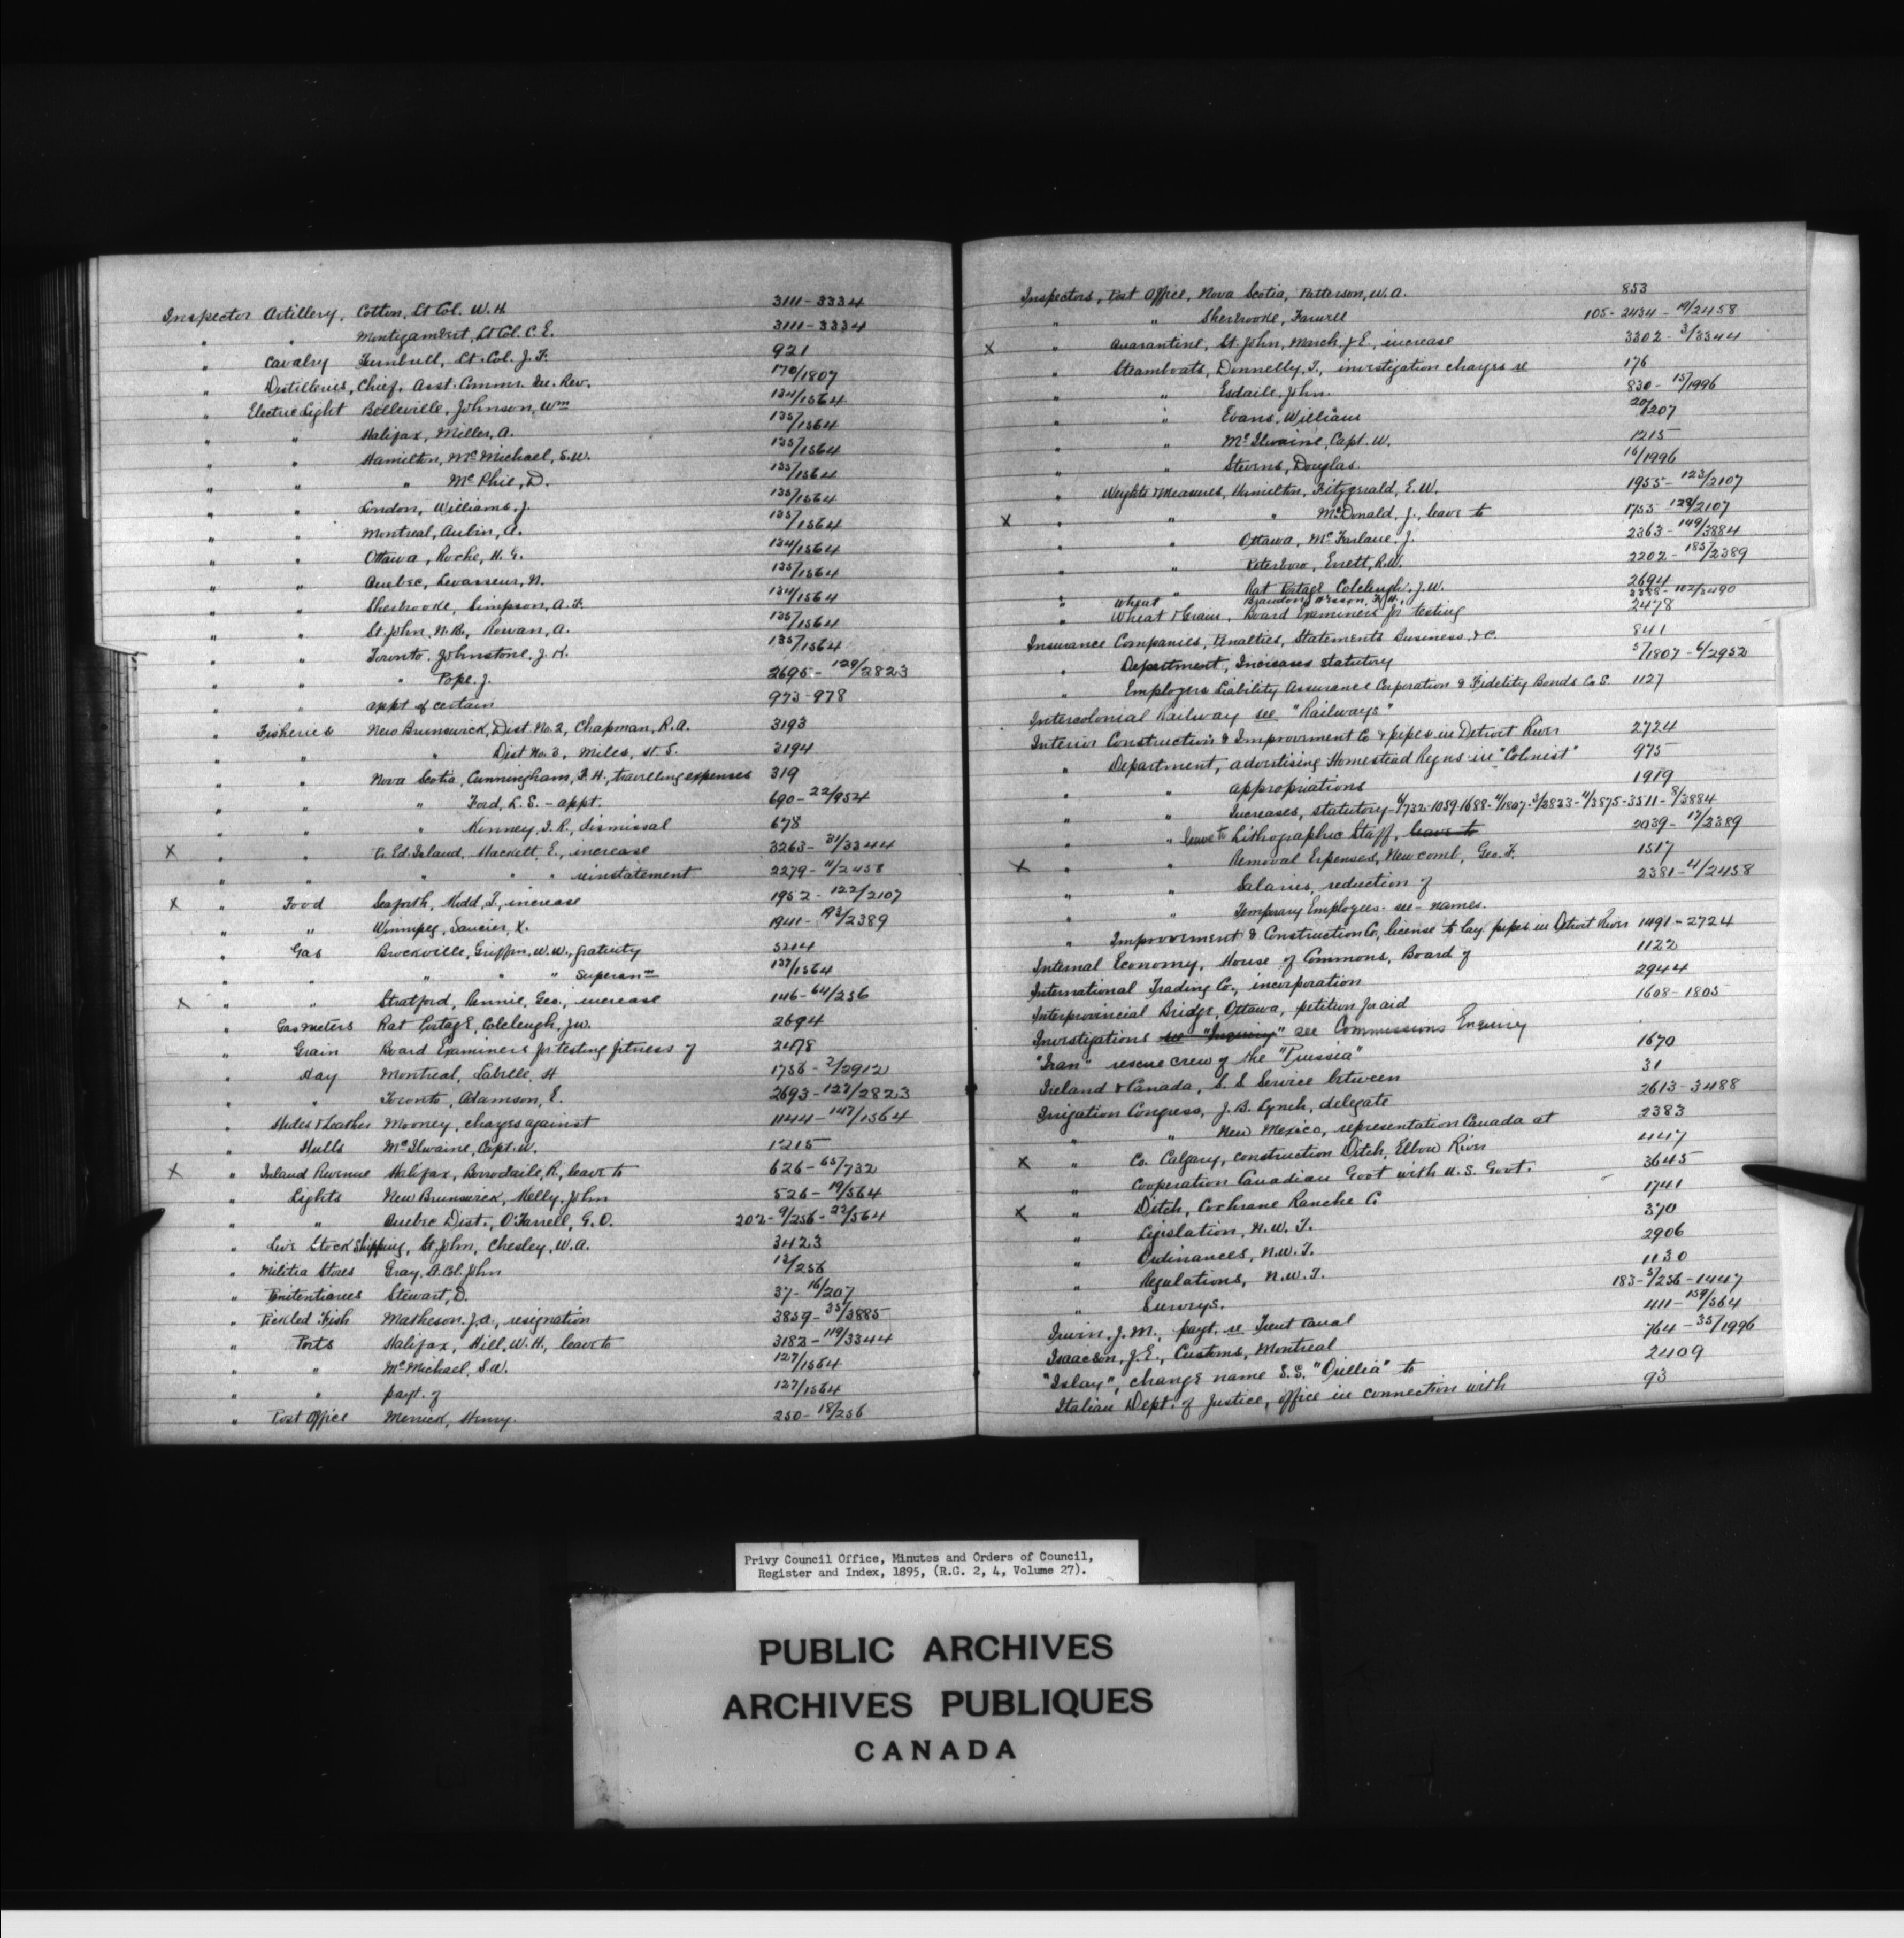 Inspector Artillery, Cotton, Lt Col. W. H. 3111-3334
" " Montizambert, Lt Col. C. E. 3111-3334
" Cavalry Turnbull, Lt. Col. J. F. 921
" Distilleries, Chief, Asst. Commr. In. Rev. 170/1807
" Electric Light Belleville, Johnson, Wm 134/1564
" " Halifax, Miller, A. 135/1564
" " Hamilton, McMichael, S. W. 135/1564
" " " McPhie, D. 135/1564
" " London, Williams, J. 135/1564
" " Montreal, Aubin, A. 135/1564
" " Ottawa, Roche, H. G. 134/1564
" " Quebec, Levasseur, N. 135/1564
" " Sherbrooke, Simpson, A. F. 134/1564
" " St. John, N.B., Rowan, A. 135/1564
" " Toronto, Johnstone, J. K. 135/1564
" " " Pope, J. 2695-129/2823
" " appt of certain 973-978
" Fisheries New Brunswick, Dist No. 2, Chapman, R. A. 3193
" " " Dist No. 3, Miles, H. S. 3194
" " Nova Scotia, Cunningham, F. H., travelling expenses 319
" " " Ford, L. S. - appt. 690-22/954
" " " Kinney, J. R., dismissal 678
X " " P. Ed. Island, Hackett, E., increase 3263-31/3344
" " " " " reinstatement 2279-11/2458
X " Food Seaforth, Kidd, T., increase 1952-122/2107
" " Winnipeg, Saucier, X. 1941-193/2389
" Gas Brockville, Griffin, W. W., gratuity 3214
" " " " " Superann 137/1564
X " " Stratford, Rennie, Geo., increase 146-64/256
" Gas meters Rat Portage, Coleleugh, J. W. 2694
" Grain Board Examiners for testing fitness of 2478
" Hay Montreal, Labelle, H 1756-2/2912
" " Toronto, Adamson, E. 2693-127/2823
" Hides & Leather Mooney, charges against 1144-147/1564
" Hulls McIlwaine, Capt. W. 1215
X " Inland Revenue Halifax, Borrodaile, R., leave to 626-65/732
" Lights New Brunswick, Kelly, John 526-19/564
" " Quebec Dist., O'Farrell, G. O. 202-9/256-22/564
" Live Stock Shipping, St. John, Chesley, W. A. 3423
" Militia Stores Gray, Lt. Col. John 12/256
" Penitentiaries Stewart, D. 37-16/207
" Pickled Fish Matheson, J. A., resignation 3859-35/3885
" Ports Halifax, Hill, W. H., leave to 3182-119/3344
" " McMichael, S. W. 127/1564
" " payt. of 127/1564
" Post Office Merrick, Henry. 250-18/256
Inspectors, Post Office, Nova Scotia, Patterson, W. A. 853
" " Sherbrooke, Farwell 105-2434-19/2458
X " Quarantine, St. John, March, J. E., increase 3302-3/3344
" Steamboats, Donnelly, T., investigation charges re 176
" " Esdaile, John. 830-15/1996
" " Evans, William 20/207
" " McIlwaine, Capt. W. 1215
" " Stevens, Douglas. 16/1996
" Weights & Measures, Hamilton, Fitzgerald, E. W. 1955-123/2107
X " " " McDonald, J., leave to 1753-129/2107
" " Ottawa, McFarlane, J. 2363-149/3884
" " Peterboro, Errett, R. W. 2202-185/2389
" " Rat Portage Coleleugh, J. W. 2694
" Wheat Brandon, 2388-102/3490
" Wheat & Grain, Board Examiners for testing 2478
Insurance Companies, Penalties, Statements Business &c. 841
" Department, Increases statutory 5/1807-6/2952
" Employers Liability Assurance Corporation & Fidelity Bonds C. S. 1127
Intercolonial Railway see "Railways"
Interior Construction & Improvement Co & pipes in Detroit River 2724
" Department, advertising Homestead Regns in "Colonist" 975
" " appropriations 1919
" " Increases, statutory-6/732-1059-1688-4/1807-3/2823-4/3875-3511-8/3884
" " leave to Lithographic Staff, leave to 2039-17/2389
X " " Removal Expenses, Newcomb, Geo. F. 1517
" " Salaries, reduction of 2381-4/2458
" " Temporary Employees - see - names.
" Improvement & Construction Co, license to lay pipes in Detroit River 1491-2724
Internal Economy, House of Commons, Board of 1122
International Trading Co., incorporation 2944
Interprovincial Bridge, Ottawa, petition for aid 1608-1805
Investigations see "Inquiry" see Commissions Enquiry
"Iran" rescue crew of the "Prussia" 1670
Ireland & Canada, S. S Service between 31
Irrigation Congress, J. B. Lynch, delegate 2613-3488
" " New Mexico, representation Canada at 2383
X " Co. Calgary, construction Ditch, Elbow River 447
" Cooperation Canadian Govt with U. S. Govt. 3645
X " Ditch, Cochrane Ranche Co 1741
" Legislation, N. W. T. 370
" Ordinances, N. W. T. 2906
" Regulations, N. W. T. 1130
" Surveys. 183-5/256-1447
Irwin, J. M., payt. re Trent Canal 411-159/564
Isaacson, J. E., Customs, Montreal 764-35/1996
"Islay", change name S. S. "Quillia" to 2409
Italian Dept. of Justice, office in connection with 93
Privy Council Office, Minutes and Orders of Council,
Register and Index, 1895, (R.G. 2, 4, Volume 27).
PUBLIC ARCHIVES
ARCHIVES PUBLIQUES
CANADA